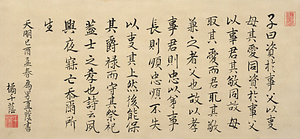 子曰資於事父以事
母其愛同資於事父
以事君其敬同故母
取其愛而君取其敬
兼之者父也故以孝
事君則忠以弟事
長則順忠順不失
以事其上然後能保
其爵祿而守其祭祀
蓋士之孝也詩云夙
興夜寐亡忝爾所
生
天明己酉孟春為書
橘千蔭